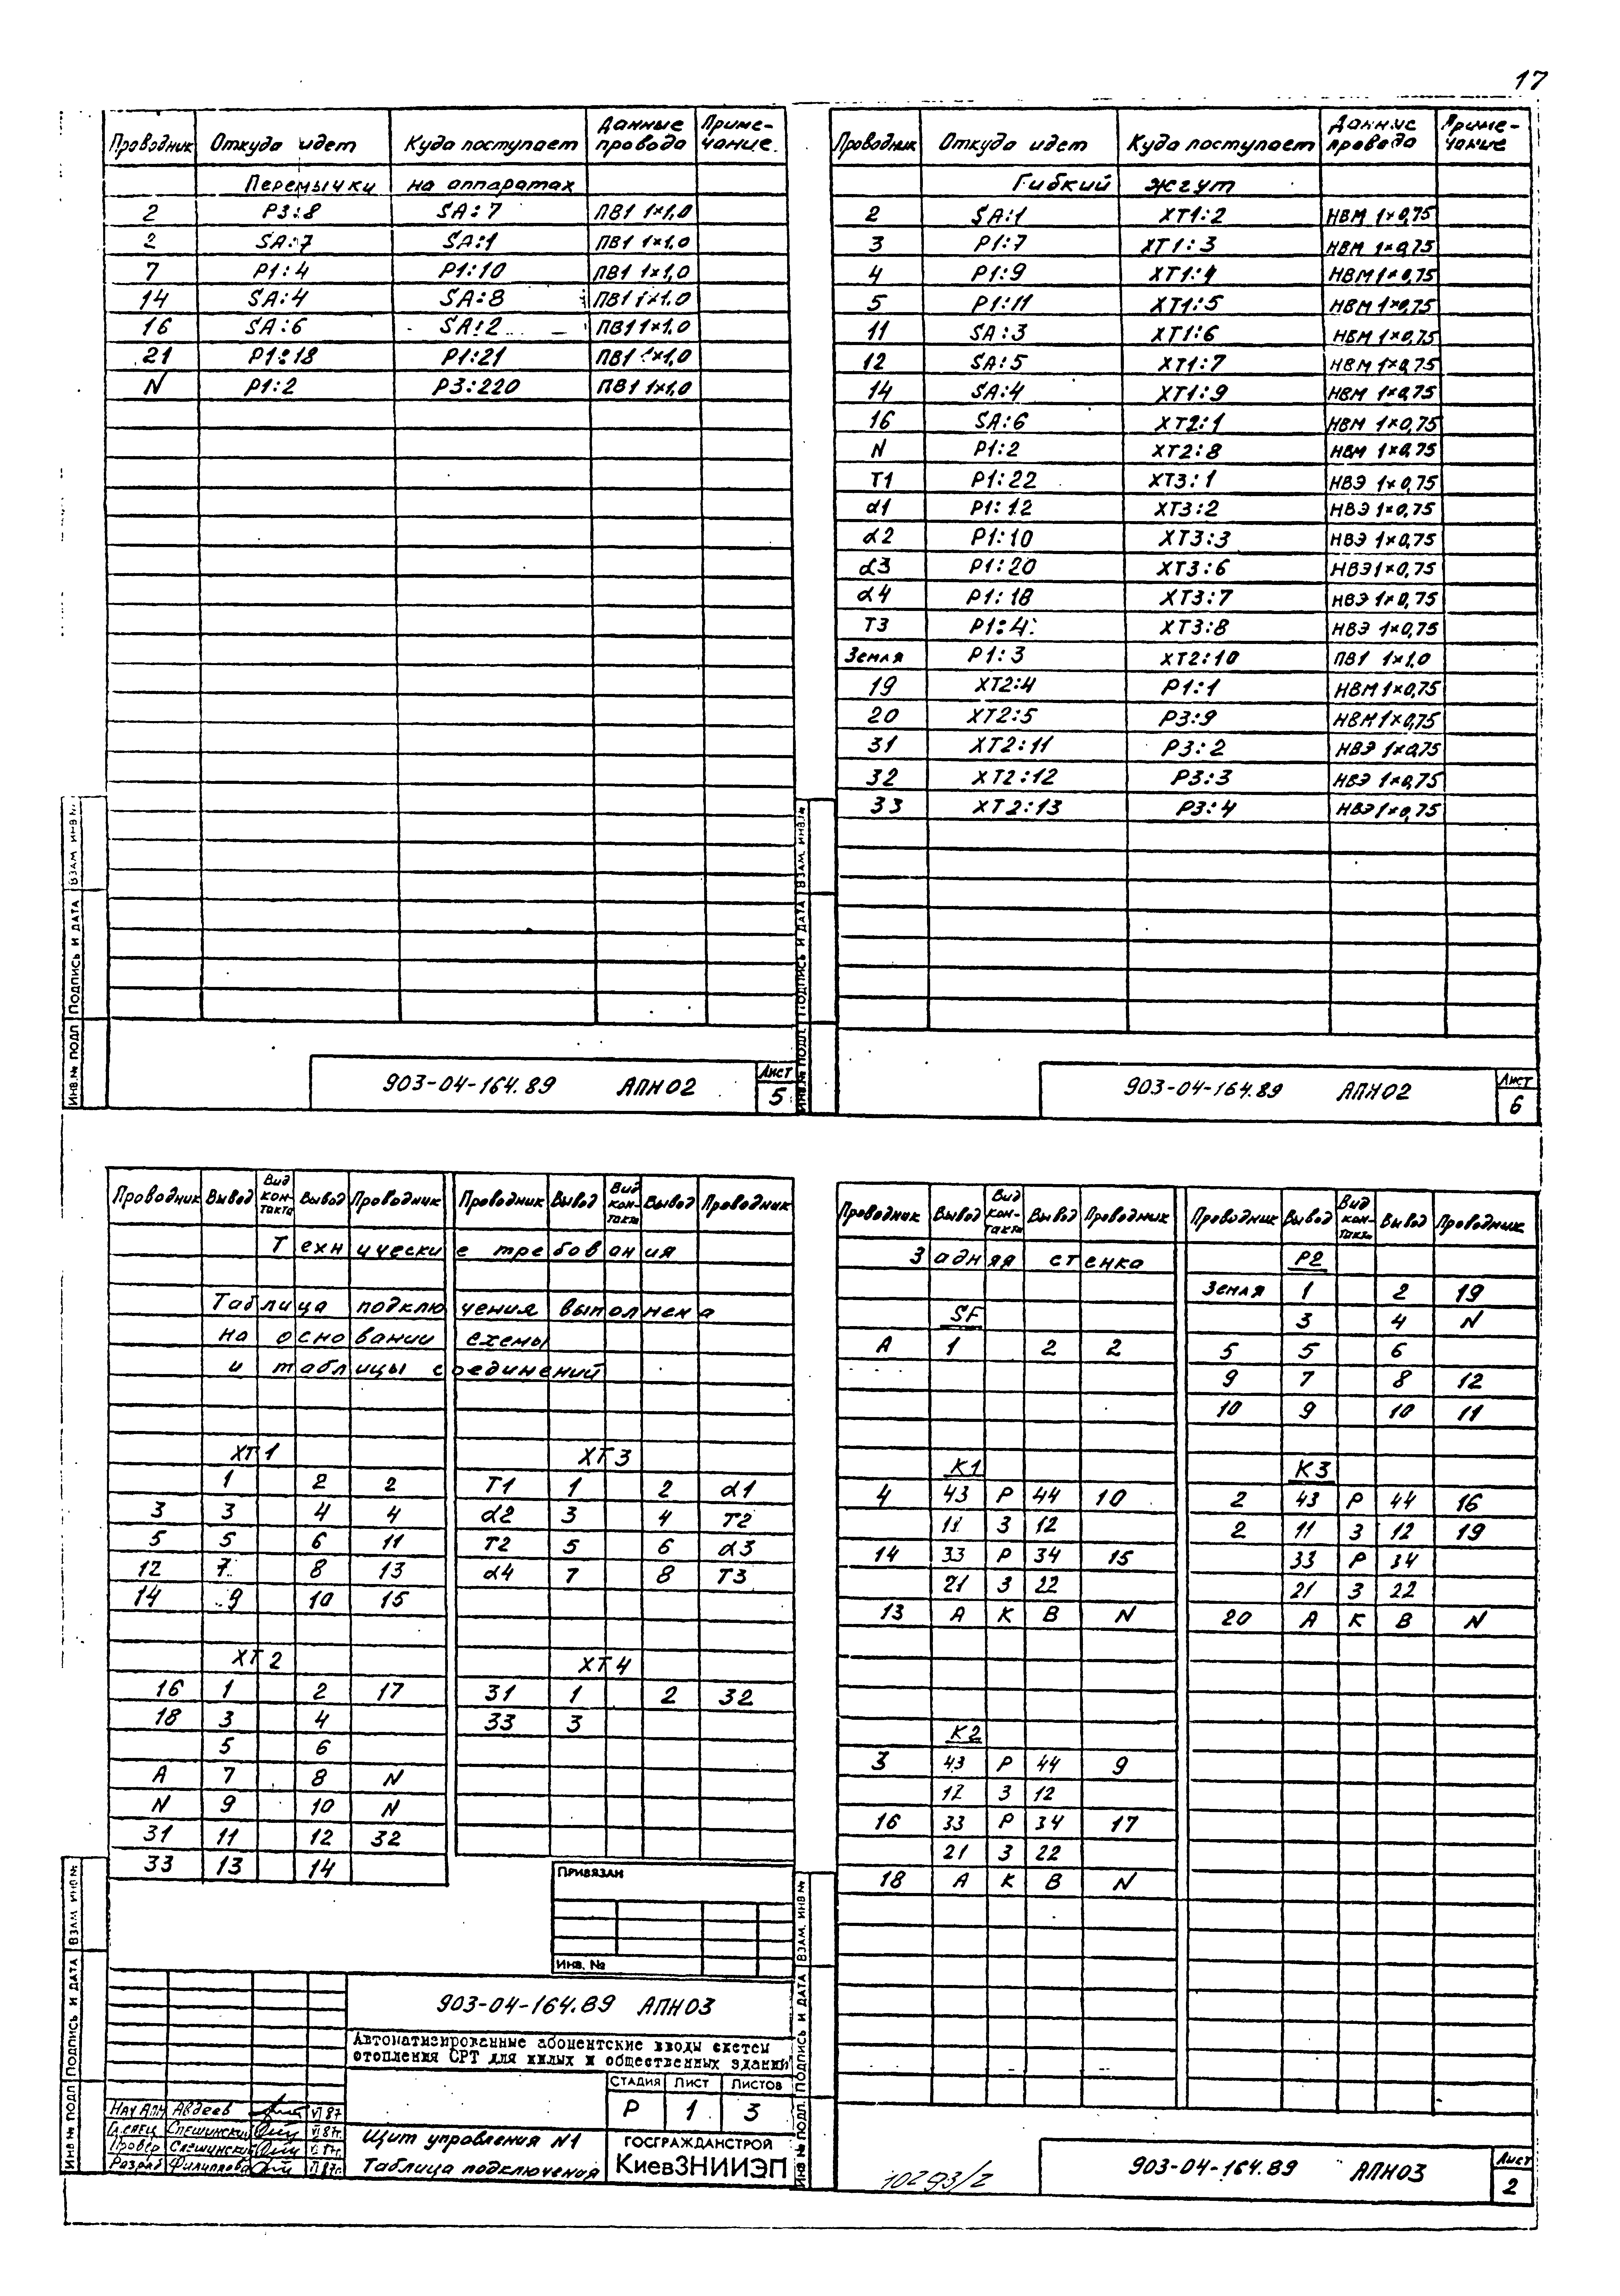 17
Проводник Откуда идет Куда поступает Данные провода Приме-чание
Перемычки на аппаратах
2 Р3:8 SA:7 ПВ1 1×1,0
2 SA:7 SA:1 ПВ1 1×1,0
7 Р1:4 Р1:10 ПВ1 1×1,0
14 SA:4 SA:8 ПВ1 1×1.0
16 SA:6 SA:2 ПВ1 1×1,0
21 Р1:18 Р1:21 ПВ1 1×1,0
N Р1:2 Р3:220 ПВ1 1×1,0
ВЗАМ ИНВ.№
ПОДПИСЬ И ДАТА
ИНВ.№ ПОДЛ
903-04-164.89 АПН02
Лист
5
Проводник Откуда идет Куда поступает Данные провода Приме-чание
Гибкий жгут
2 SA:1 ХТ1:2 НВМ 1×0,75
3 Р1:7 ХТ1:3 НВМ 1×0,75
4 Р1:9 ХТ1:4 НВМ 1×0,75
5 Р1:11 ХТ1:5 НВМ 1×0,75
11 SA:3 ХТ1:6 НВМ 1×0,75
12 SA:5 ХТ1:7 НВМ 1×0,75
14 SA:4 ХТ1:9 НВМ 1×0,75
16 SA:6 ХТ2:1 НВМ 1×0,75
N Р1:2 ХТ2:8 НВМ 1×0,75
Т1 Р1:22 ХТ3:1 НВЭ 1×0,75
α1 Р1:12 ХТ3:2 НВЭ 1×0,75
α2 Р1:10 ХТ3:3 НВЭ 1×0,75
α3 Р1:20 ХТ3:6 НВЭ 1×0,75
α4 Р1:18 ХТ3:7 НВЭ 1×0,75
Т3 Р1:4 ХТ3:8 НВЭ 1×0,75
Земля Р1:3 ХТ2:10 ПВ1 1×1,0
19 ХТ2:4 Р1:1 НВМ 1×0,75
20 ХТ2:5 Р3:9 НВМ 1×0,75
31 ХТ2:11 Р3:2 НВЭ 1×0,75
32 ХТ2:12 Р3:3 НВЭ 1×0,75
33 ХТ2:13 Р3:4 НВЭ 1×0,75
ВЗАМ. ИНВ.№
ПОДПИСЬ И ДАТА
ИНВ.№ ПОДЛ.
903-04-164.89 АПН02
Лист
6
Проводник Вывод Вид кон-такта Вывод Проводник Проводник Вывод Вид кон-такта Вывод Проводник
Технические требования
Таблица подключения выполнена
на основании схемы
и таблицы соединений
ХТ1 ХТ3
1 2 2 Т1 1 2 α1
3 3 4 4 α2 3 4 Т2
5 5 6 11 Т2 5 6 α3
12 7 8 13 α4 7 8 Т3
14 9 10 15
ХТ2 ХТ4
16 1 2 17 31 1 2 32
18 3 4 33 3
5 6
А 7 8 N
N 9 10 N
31 11 12 32
33 13 14
ПРИВЯЗАН
ИНВ. №
ВЗАМ ИНВ №
ПОДПИСЬ И ДАТА
ИНВ № ПОДЛ
903-04-164.89 АПН03
Автоматизированные абонентские вводы систем
отопления СРТ для жилых и общественных зданий
СТАДИЯ ЛИСТ ЛИСТОВ
Р 1 3
Нач АПН Авдеев VI 87
Гл.спец Слешинский VI 87г.
Провер Слешинский VI 87г.
Разраб Филиппова VI 87г.
Щит управления N1
Таблица подключения
ГОСГРАЖДАНСТРОЙ
КиевЗНИИЭП
Проводник Вывод Вид кон-такта Вывод Проводник Проводник Вывод Вид кон-такта Вывод Проводник
Задняя стенка Р2
Земля 1 2 19
SF 3 4 N
А 1 2 2 5 5 6
9 7 8 12
10 9 10 11
К1 К3
4 43 Р 44 10 2 43 Р 44 16
11 З 12 2 11 З 12 19
14 33 Р 34 15 33 Р 34
21 З 22 21 З 22
13 А К В N 20 А К В N
К2
3 43 Р 44 9
12 З 12
16 33 Р 34 17
21 З 22
18 А К В N
ВЗАМ. ИНВ №
ПОДПИСЬ И ДАТА
ИНВ № ПОДЛ.
10293/2
903-04-164.89 АПН03
Лист
2